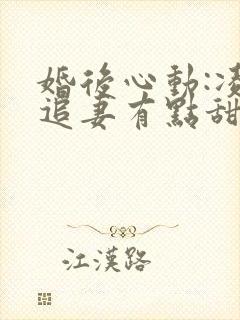 婚後心動:凌
追妻有點甜
江漢路